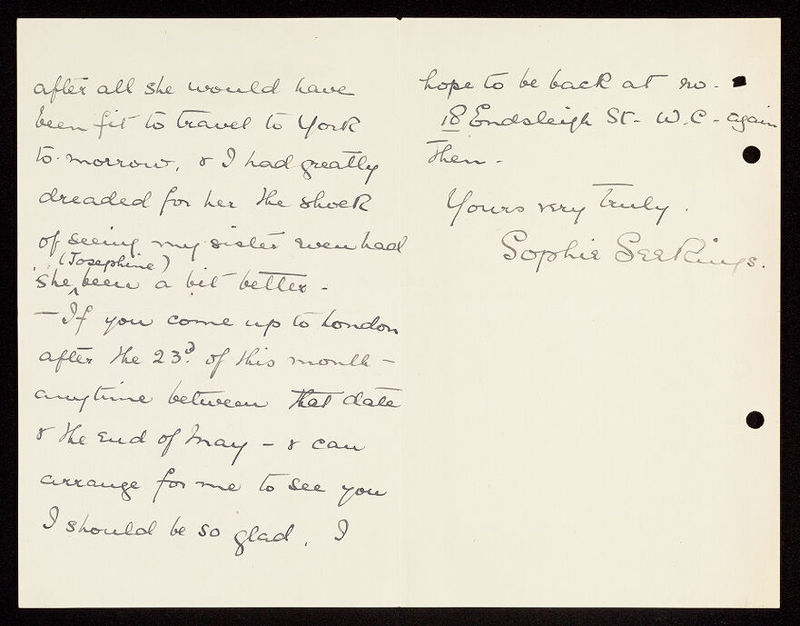 after all she would have
been fit to travel to York
to-morrow, & I had greatly
dreaded for her the shock
of seeing my sister even had
(Josephine)
she ^ been a bit better -
- If you come up to London
after the 23d. of this month -
anytime between that date
& the end of May - & can
arrange for me to see you
I should be so glad. I
hope to be back at no.
18 Endsleigh St- W.C- again
then -
Yours very truly.
Sophie Seekings.